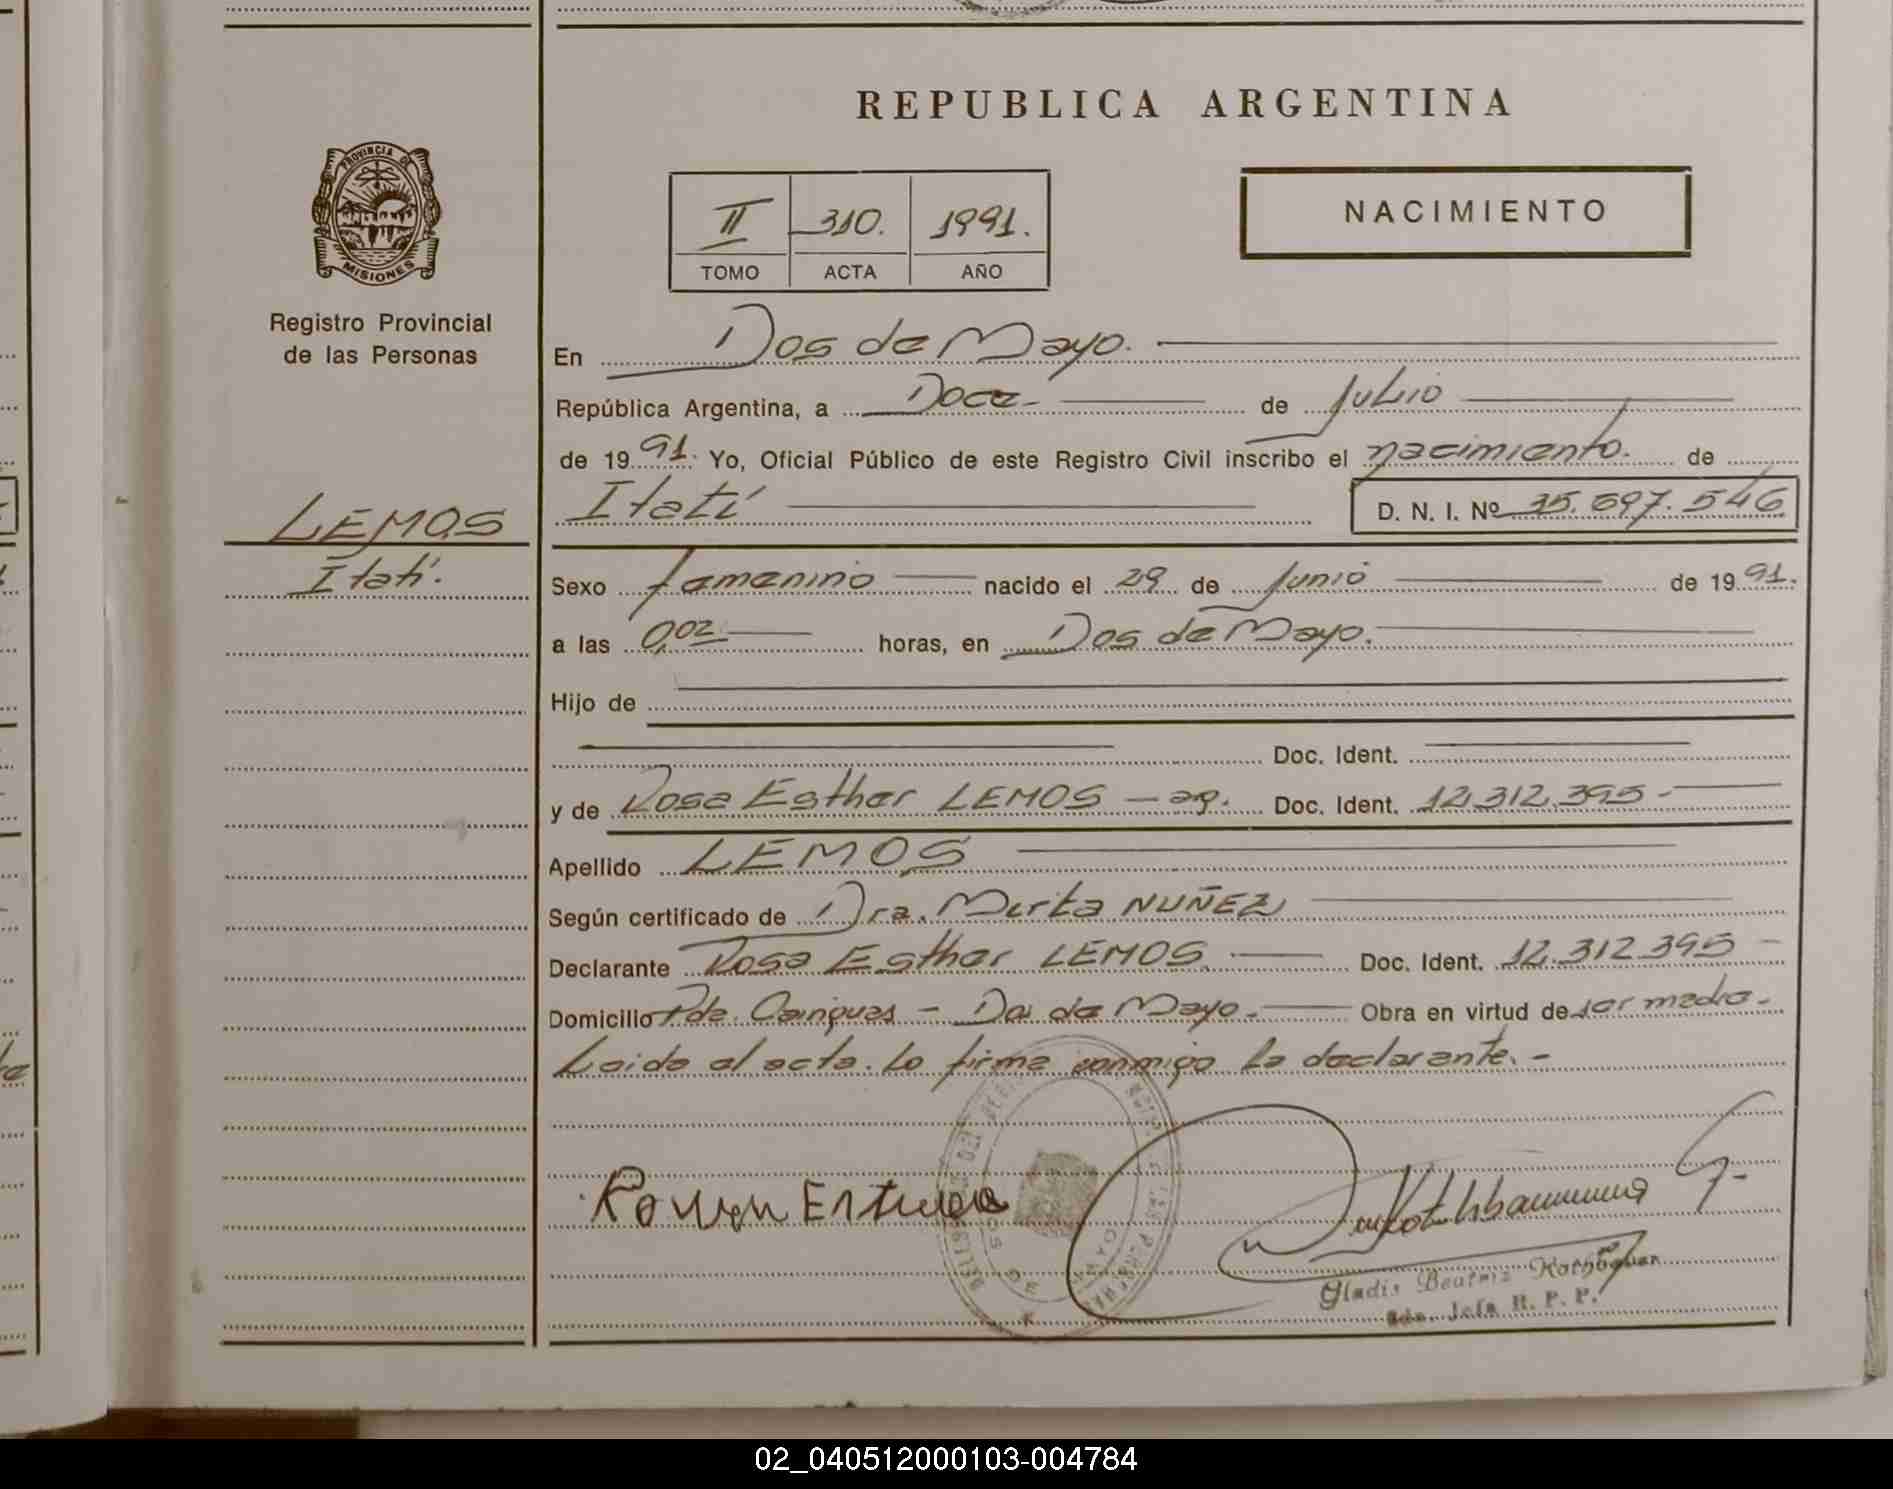 REPUBLICA ARGENTINA
PROVINCIA DE
MISIONES
Registro Provincial
de las Personas
II 310. 1991.
TOMO ACTA AÑO
NACIMIENTO
En Dos de Mayo.
República Argentina, a Doce de Julio
de 1991. Yo, Oficial Público de este Registro Civil inscribo el nacimiento. de
Itatí D. N. I. Nº 35.697.546
LEMOS
Itatí.
Sexo femenino nacido el 29 de Junio de 1991.
a las 0,02 horas, en Dos de Mayo.
Hijo de
Doc. Ident.
y de Rosa Esther LEMOS - ag. Doc. Ident. 12.312.395-
Apellido LEMOS
Según certificado de Dra. Mirta NUÑEZ
Declarante Rosa Esther LEMOS. Doc. Ident. 12.312.395-
Domicilio Pde. Cainguas - Dos de Mayo. Obra en virtud de ser madre.
Leida el acta. Lo firma conmigo la declarante.-
Gladis Beatriz
Jefa R. P. P.
02_040512000103-004784